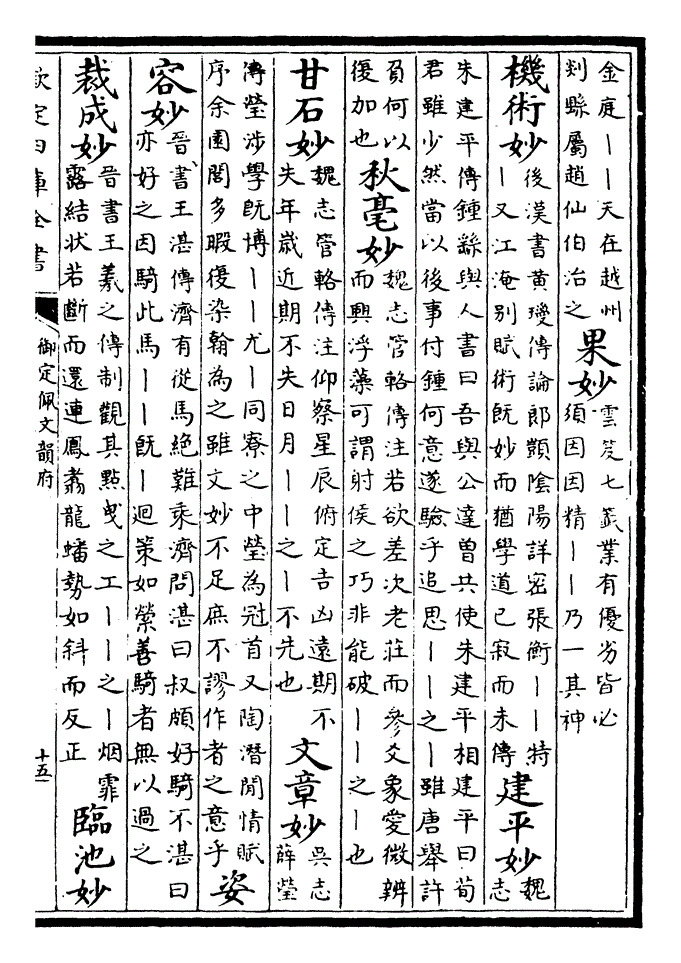 金庭丨丨天在越州
剡縣屬趙仙伯治之
果妙
雲笈七籖業有優劣皆必
須因因精丨丨乃一其神
機術妙
後漢書黄瓊傳論郎顗陰陽詳密張衡丨丨特
丨又江淹别賦術既妙而猶學道已寂而未傳
建平妙
魏
志
朱建平傳鍾繇與人書曰吾與公達曾共使朱建平相建平曰荀
君雖少然當以後事付鍾何意遂驗乎追思丨丨之丨雖唐舉許
負何以
復加也
秋毫妙
魏志管輅傳注若欲差次老莊而參爻象愛微辨
而興浮藻可謂射侯之巧非能破丨丨之丨也
甘石妙
魏志管輅傳注仰察星辰俯定吉凶遠期不
失年歲近期不失日月丨丨之丨不先也
文章妙
吳志
薛瑩
傳瑩涉學既博丨丨尤丨同寮之中瑩為冠首又陶潛閒情賦
序余園閭多暇復染翰為之雖文妙不足庶不謬作者之意乎
姿
容妙
晉書王湛傳濟有從馬絶難乘濟問湛曰叔頗好騎不湛曰
亦好之因騎此馬丨丨既丨迴策如縈善騎者無以過之
裁成妙
晉書王羲之傳制觀其點曳之工丨丨之丨烟霏
露結状若斷而還連鳳翥龍蟠勢如斜而反正
臨池妙
欽定四庫全書
御定佩文韻府
十五